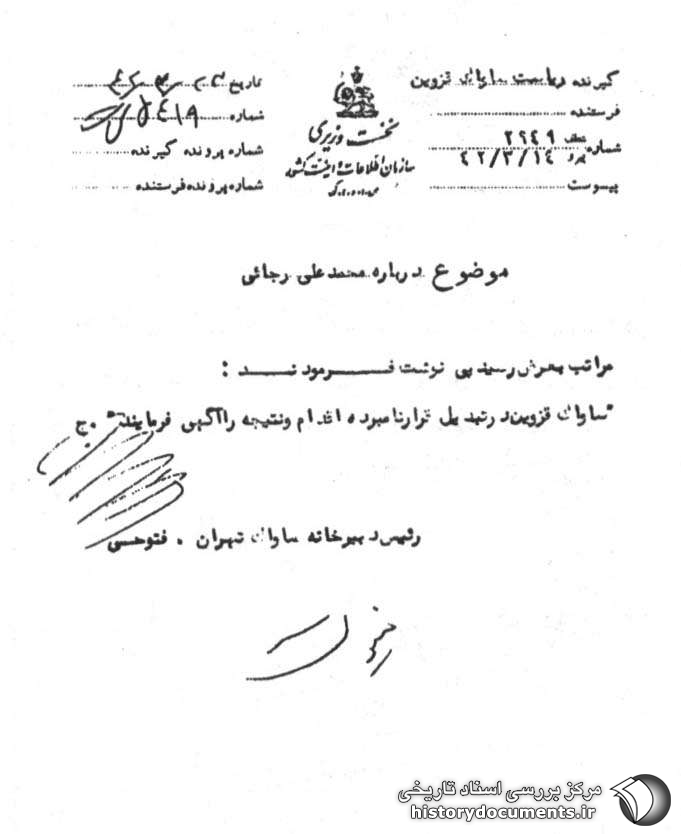 گیرنده ریاست ساواک قزوین
فرستنده
شماره عطف ۲۹۴۹
پیرو ۴۲/۳/۱۴
پیوست
نخست وزیری
سازمان اطلاعات و امنیت کشور
تاریخ
شماره
شماره پرونده گیرنده
شماره پرونده فرستنده
موضوع درباره محمدعلی رجائی
مراتب بعرض رسید پی نوشت فرمودند :
"ساواک قزوین در تبدیل قرار نامبرده اقدام و نتیجه را آگهی فرمایند" ج
رئیس دبیرخانه ساواک تهران . فتوحی
مرکز بررسی اسناد تاریخی
historydocuments.ir